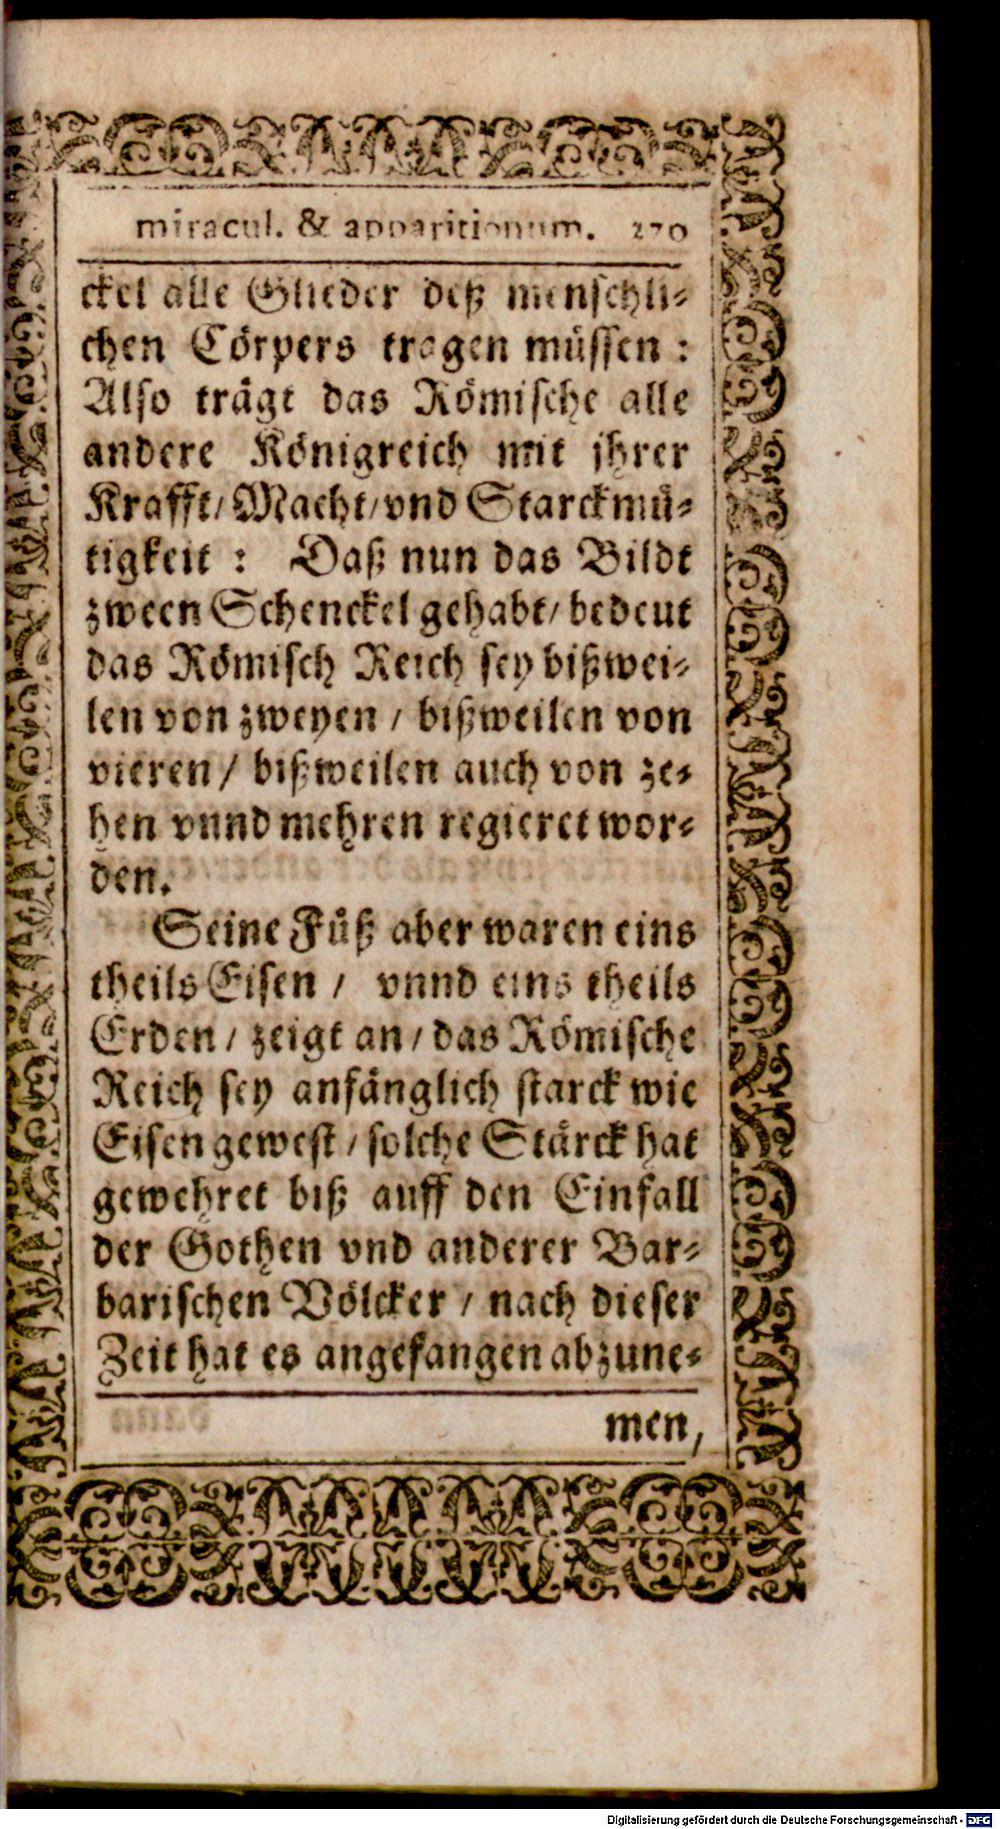 miracul. & apparitionum. 270
ckel alle Glieder deß menschli⸗
chen Cörpers tragen müssen :
Also trägt das Römische alle
andere Königreich mit jhrer
Krafft/ Macht/ vnd Starckmü⸗
tigkeit : Daß nun das Bildt
zween Schenckel gehabt/ bedeut
das Römisch Reich sey bißwei⸗
len von zweyen / bißweilen von
vieren / bißweilen auch von ze⸗
hen vnnd mehren regieret wor⸗
den.
Seine Füß aber waren eins
theils Eisen / vnnd eins theils
Erden / zeigt an / das Römische
Reich sey anfänglich starck wie
Eisen gewest / solche Stärck hat
gewehret biß auff den Einfall
der Gothen vnd anderer Bar⸗
barischen Völcker / nach dieser
Zeit hat es angefangen abzune⸗
men,
Digitalisierung gefördert durch die Deutsche Forschungsgemeinschaft - DFG